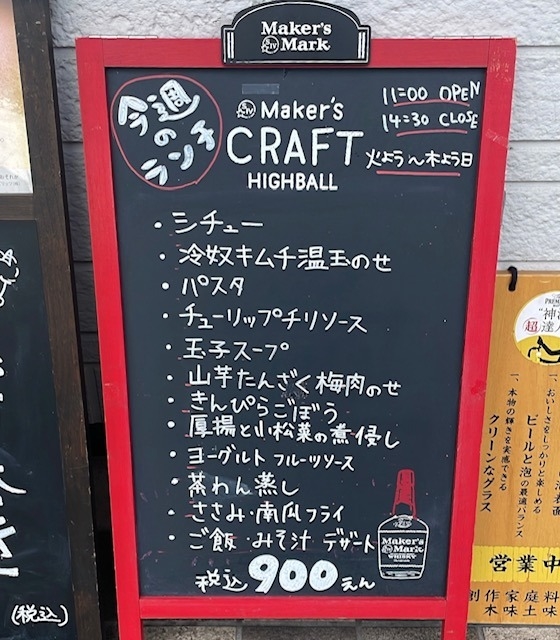 Maker's
Mark
今週
の
ランチ
Maker's
CRAFT
HIGHBALL
11:00 OPEN
14:30 CLOSE
火よう〜木よう日
・シチュー
・冷奴キムチ温玉のせ
・パスタ
・チューリップチリソース
・玉子スープ
・山芋たんざく梅肉のせ
・きんぴらごぼう
・厚揚と小松菜の煮侵し
・ヨーグルトフルーツソース
・茶わん蒸し
・ささみ・南瓜フライ
・ご飯・みそ汁 デザート
税込900えん
Maker's
Mark
WHISKY
(税込)
超達人
一、おいしさをしっかりと楽しめる
ビールと泡の最適バランス
一、本物の輝きを実感できる
クリーンなグラス
営業中
創作家庭料
木味土